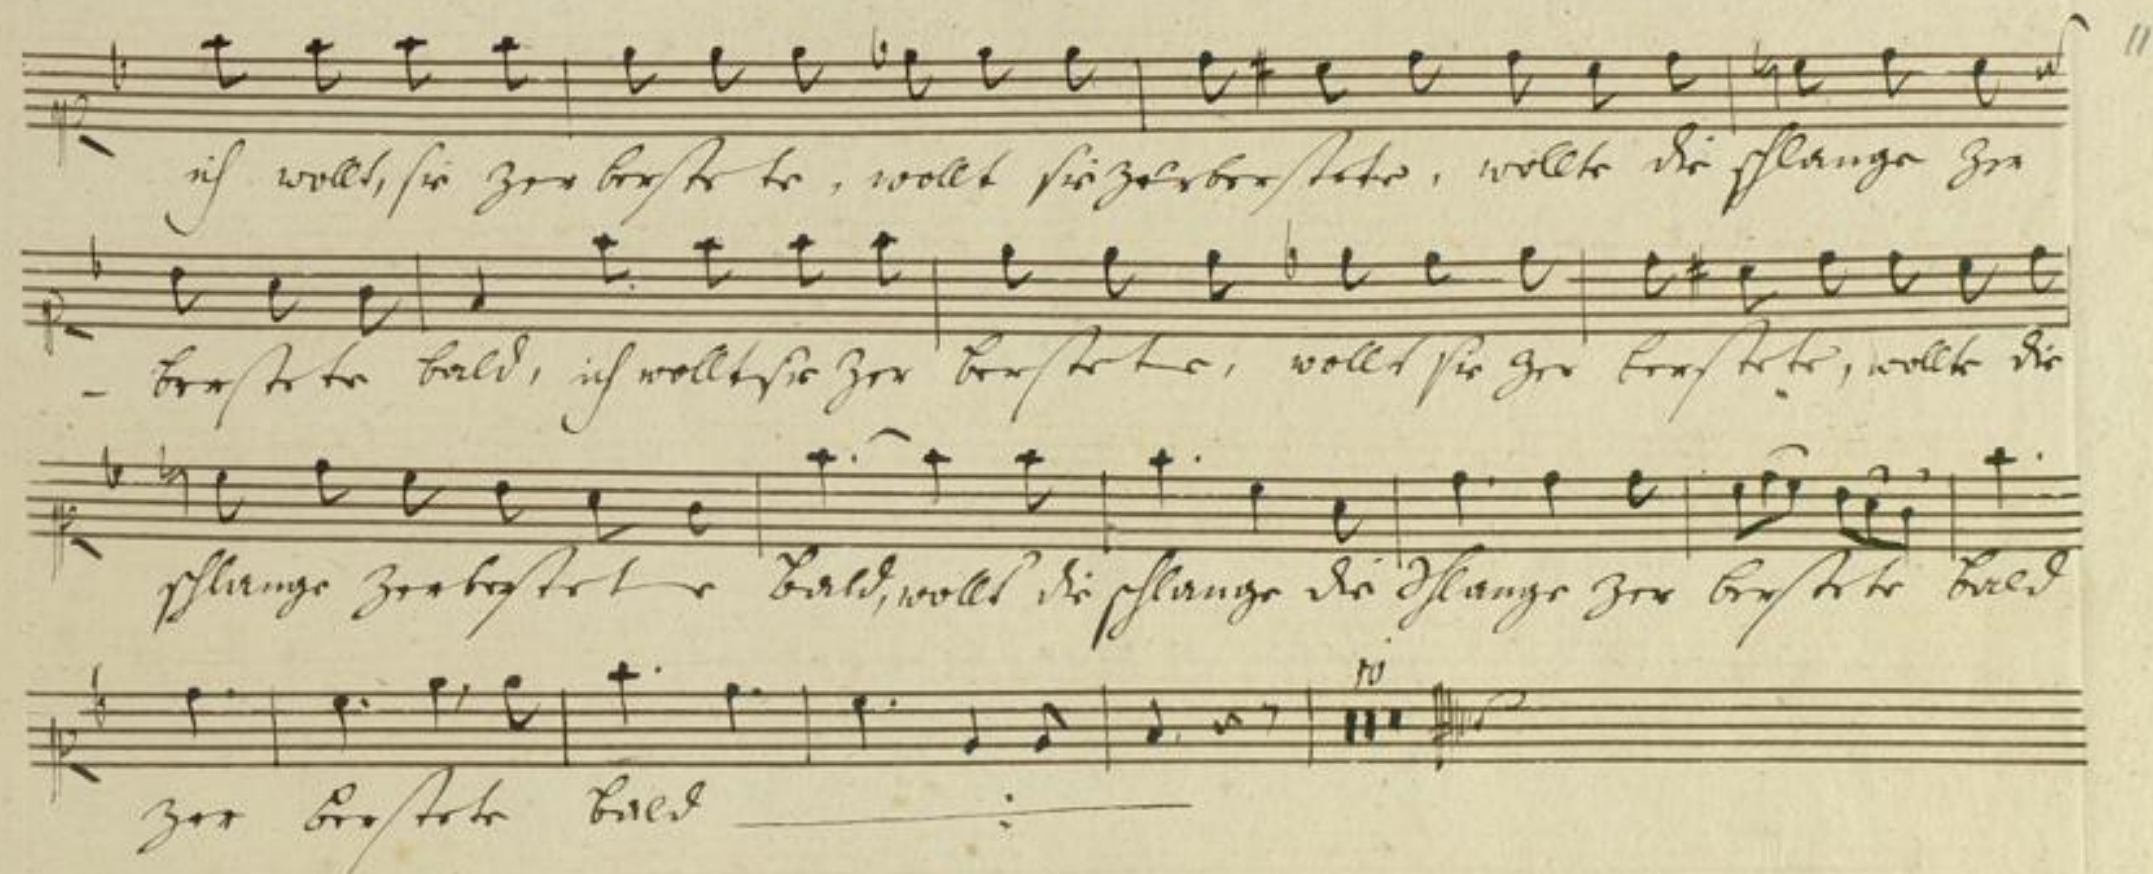 ich wollt, sie zerberstete, wollt sie zerberstete, wollte die schlange zer
- berstete bald, ich wollt sie zer berstete, wollt sie zer berstete, wollte die
schlange zerberstete bald, wollt die schlange die Schlange zer berstete bald
10
zer berstete bald